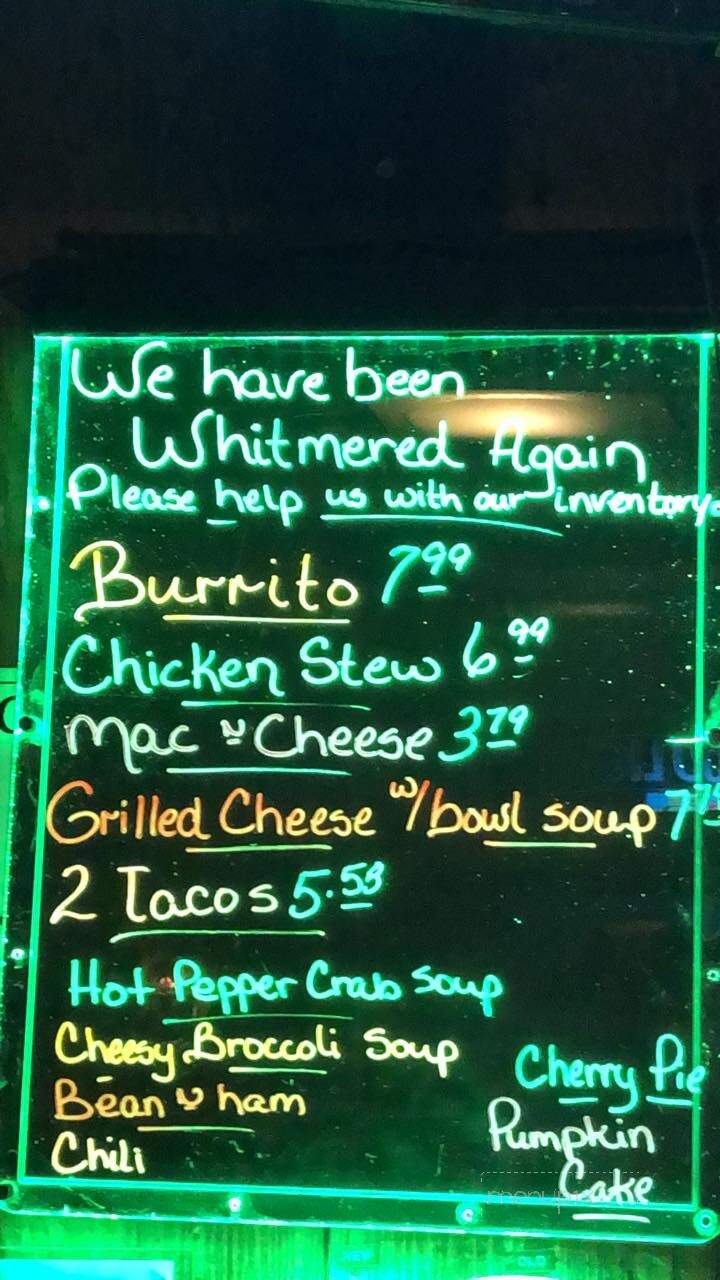 We have been
Whitmered Again
Please help us with our inventory
Burrito 7.99
Chicken Stew 6.99
Mac n Cheese 3.79
Grilled Cheese w/bowl soup
2 Tacos 5.53
Hot Pepper Crab Soup
Cheesy Broccoli Soup
Bean n ham
Chili
Cherry Pie
Pumpkin
Cake